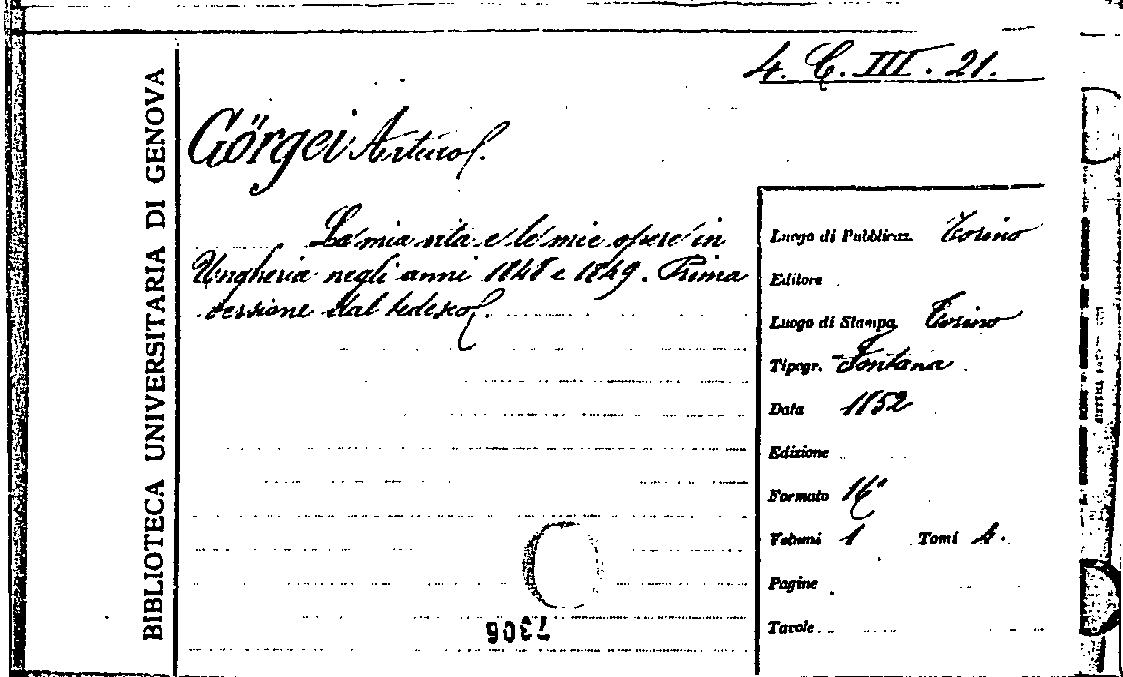 4. C. III. 21.
BIBLIOTECA UNIVERSITARIA DI GENOVA
Görgei Arturo.
La mia vita e le mie opere in
Ungheria negli anni 1848 e 1849. Prima
versione dal tedesco.
Luogo di Pubblicaz. Torino
Editore
Luogo di Stampa Torino
Tipogr. Fontana
Data 1852
Edizione
Formato 16°
Volumi 1 Tomi 4.
Pagine
Tavole
7306